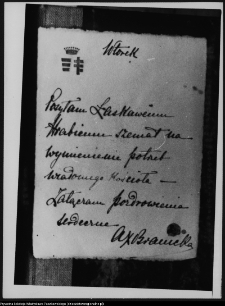 Wtorek
Posyłam Łaskawemu
Hrabiemu szemat na
wymienienie potrzeb
wiadomego Kościoła —
Załączam pozdrowienia
serdeczne
AXBranicka